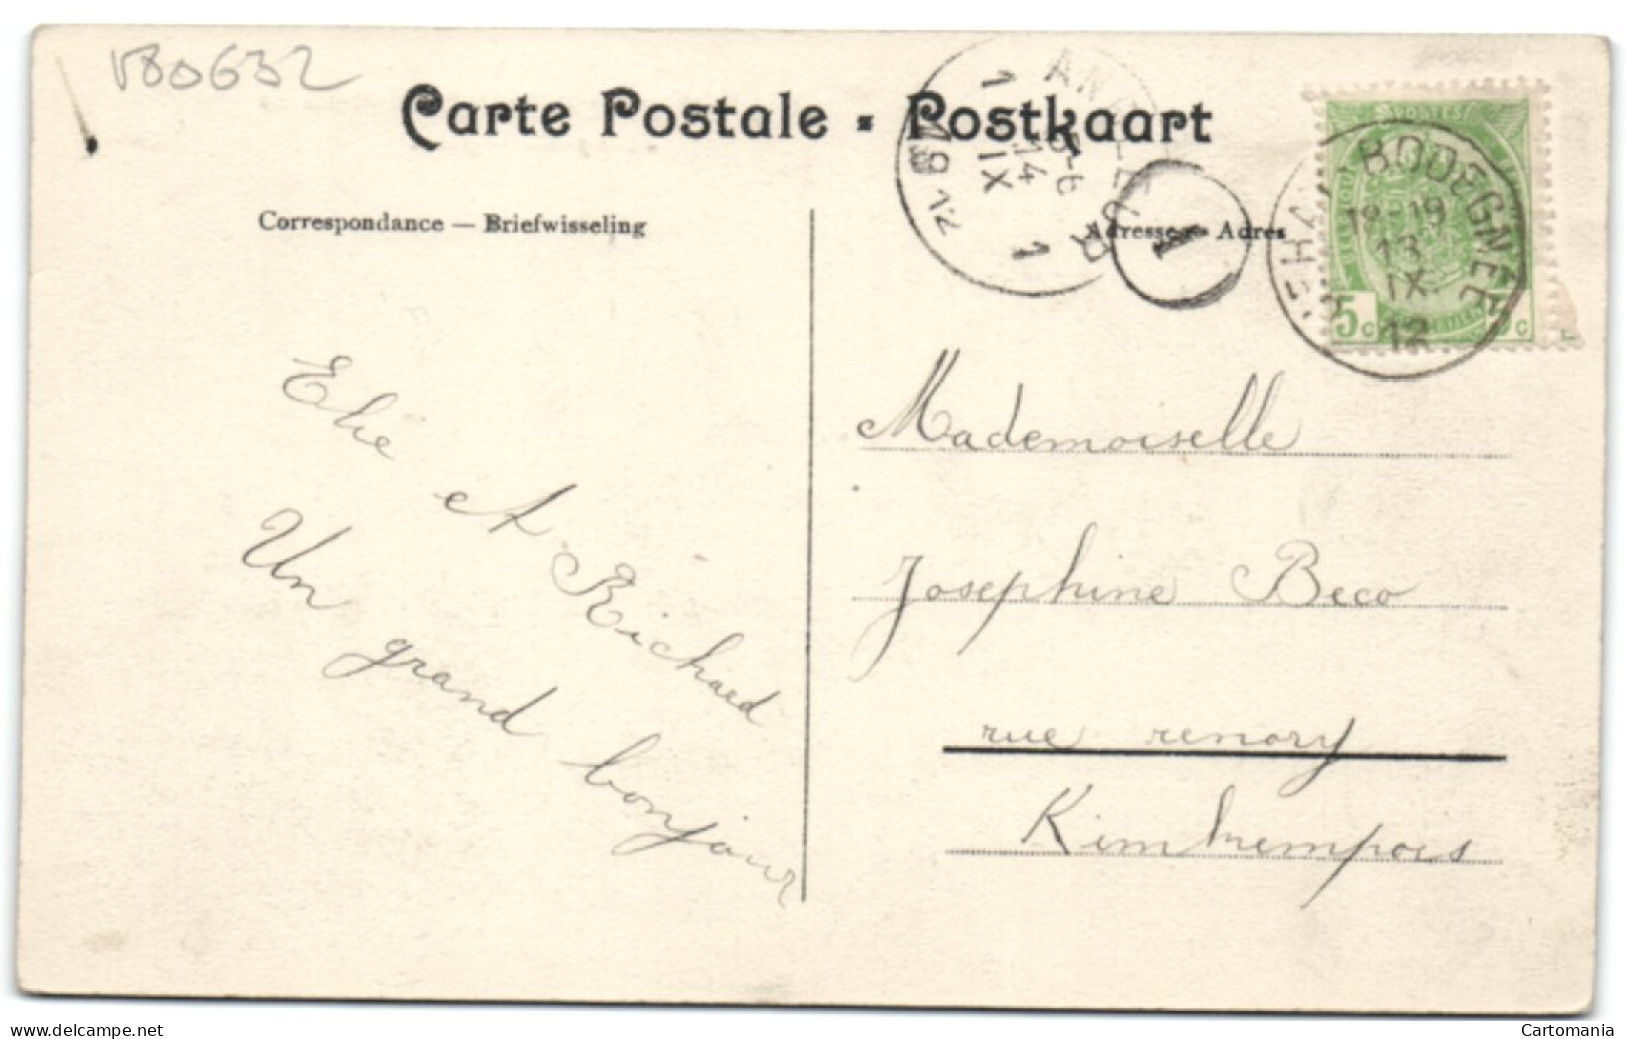 V80632
Carte Postale - Postkaart
Correspondance — Briefwisseling
Adresse — Adres
ANGLEUR
1 1
5-6
14
IX
12
1 1
1
JEHAY-BODEGNÉE
18-19
13
IX
12
POSTES
5c
Elie et Richard
Un grand bonjour
Mademoiselle
Josephine Beco
rue renory
Kimkempois
www.delcampe.net
Cartomania